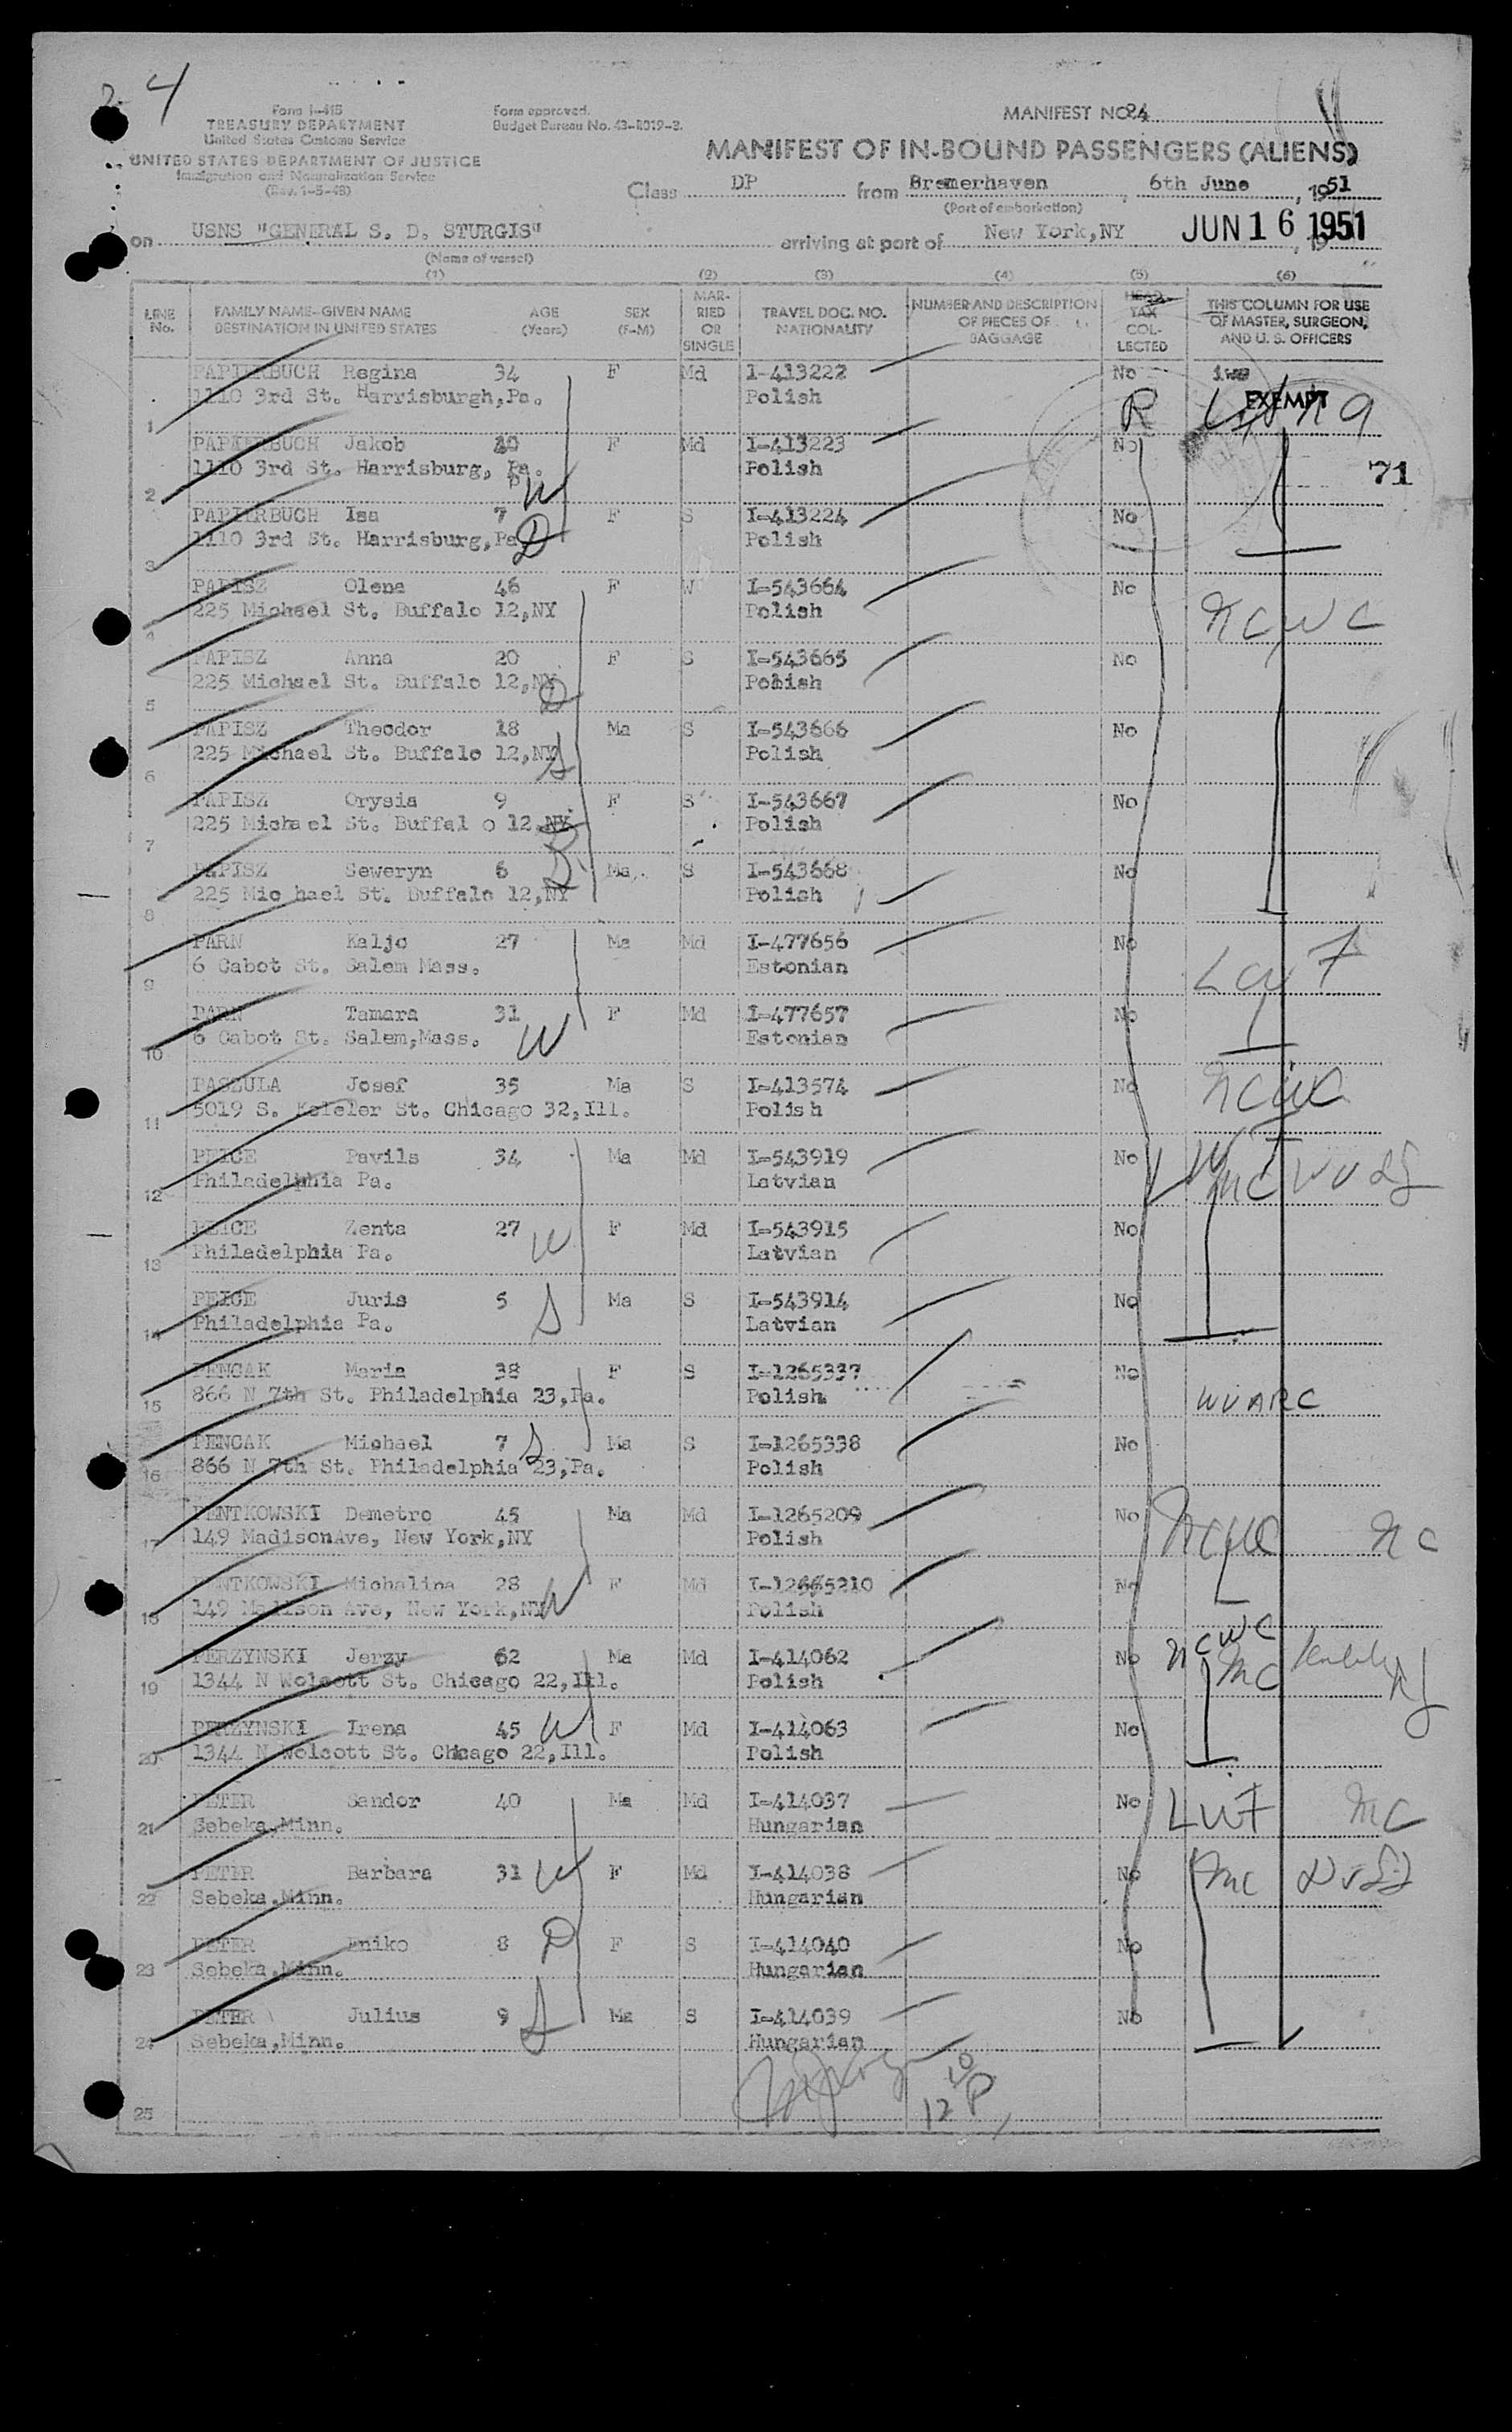 4
Form I-415
TREASURY DEPARTMENT
United States Customs Service
UNITED STATES DEPARTMENT OF JUSTICE
Immigration and Naturalization Service
(Rev. 1-5-48)
Form approved.
Budget Bureau No. 43-R019-2.
MANIFEST NO. 24
MANIFEST OF IN-BOUND PASSENGERS (ALIENS)
Class DP from Bremerhaven, 6th June, 1951
(Port of embarkation)
on USNS "GENERAL S. D. STURGIS" arriving at port of New York, NY JUN 16 1951
(Name of vessel)
(1) (2) (3) (4) (5) (6)
LINE No. FAMILY NAME-GIVEN NAME DESTINATION IN UNITED STATES AGE (Years) SEX (F-M) MARRIED OR SINGLE TRAVEL DOC. NO. NATIONALITY NUMBER AND DESCRIPTION OF PIECES OF BAGGAGE HEAD TAX COLLECTED THIS COLUMN FOR USE OF MASTER, SURGEON, AND U. S. OFFICERS
PAPIERBUCH Regina 34 F Md I-413222 No
1 1110 3rd St. Harrisburgh, Pa. Polish R EXEMPT
PAPIERBUCH Jakob F Md I-413223 No
2 1110 3rd St. Harrisburg, Pa. Polish 71
W
PAPIERBUCH Isa 7 F S I-413224 No
3 1110 3rd St. Harrisburg, Pa. D Polish
PAPISZ Olena 46 F W I-543664 No
4 225 Michael St. Buffalo 12,NY Polish NCWC
PAPISZ Anna 20 F S I-543665 No
5 225 Michael St. Buffalo 12,NY D Polish
PAPISZ Theodor 18 Ma S I-543666 No
6 225 Michael St. Buffalo 12,NY S Polish
PAPISZ Orysia 9 F S I-543667 No
7 225 Michael St. Buffal o 12,NY Polish
PAPISZ Seweryn 6 Ma S I-543668 No
8 225 Mic hael St. Buffalo 12,NY Polish
PARN Kaljo 27 Ma Md I-477656 No
9 6 Cabot St. Salem Mass. Estonian LWF
PARN Tamara 31 F Md I-477657 No
10 6 Cabot St. Salem,Mass. W Estonian
PASZULA Josef 35 Ma S I-413574 No NCWC
11 5019 S. Keleler St. Chicago 32,Ill. Polis h
PEICE Pavils 34 Ma Md I-543919 No LWF
12 Philadelphia Pa. Latvian
PEICE Zenta 27 W F Md I-543915 No
13 Philadelphia Pa. Latvian
PEICE Juris 5 S Ma S I-543914 No
14 Philadelphia Pa. Latvian
PENCAK Maria 38 F S I-1265337 No
15 866 N 7th St. Philadelphia 23,Pa. Polish WUARC
PENCAK Michael 7 S Ma S I-1265338 No
16 866 N 7th St. Philadelphia 23,Pa. Polish
PENTKOWSKI Demetro 45 Ma Md I-1265209 No
17 149 MadisonAve, New York,NY Polish NCWC
PENTKOWSKI Michalina 28 F Md I-1265210 No
18 149 Madison Ave, New York,NY W Polish
PERZYNSKI Jerzy 62 Ma Md I-414062 No NCWC
19 1344 N Wolcott St. Chicago 22,Ill. Polish MC
PERZYNSKI Irena 45 W F Md I-414063 No
20 1344 N Wolcott St. Chicago 22,Ill. Polish
PETER Sandor 40 Ma Md I-414037 No LWF MC
21 Sebeka,Minn. Hungarian
PETER Barbara 31 W F Md I-414038 No MC
22 Sebeka,Minn. Hungarian
PETER Eniko 8 D F S I-414040 No
23 Sebeka,Minn. Hungarian
PETER Julius 9 S Ma S I-414039 No
24 Sebeka,Minn. Hungarian
25